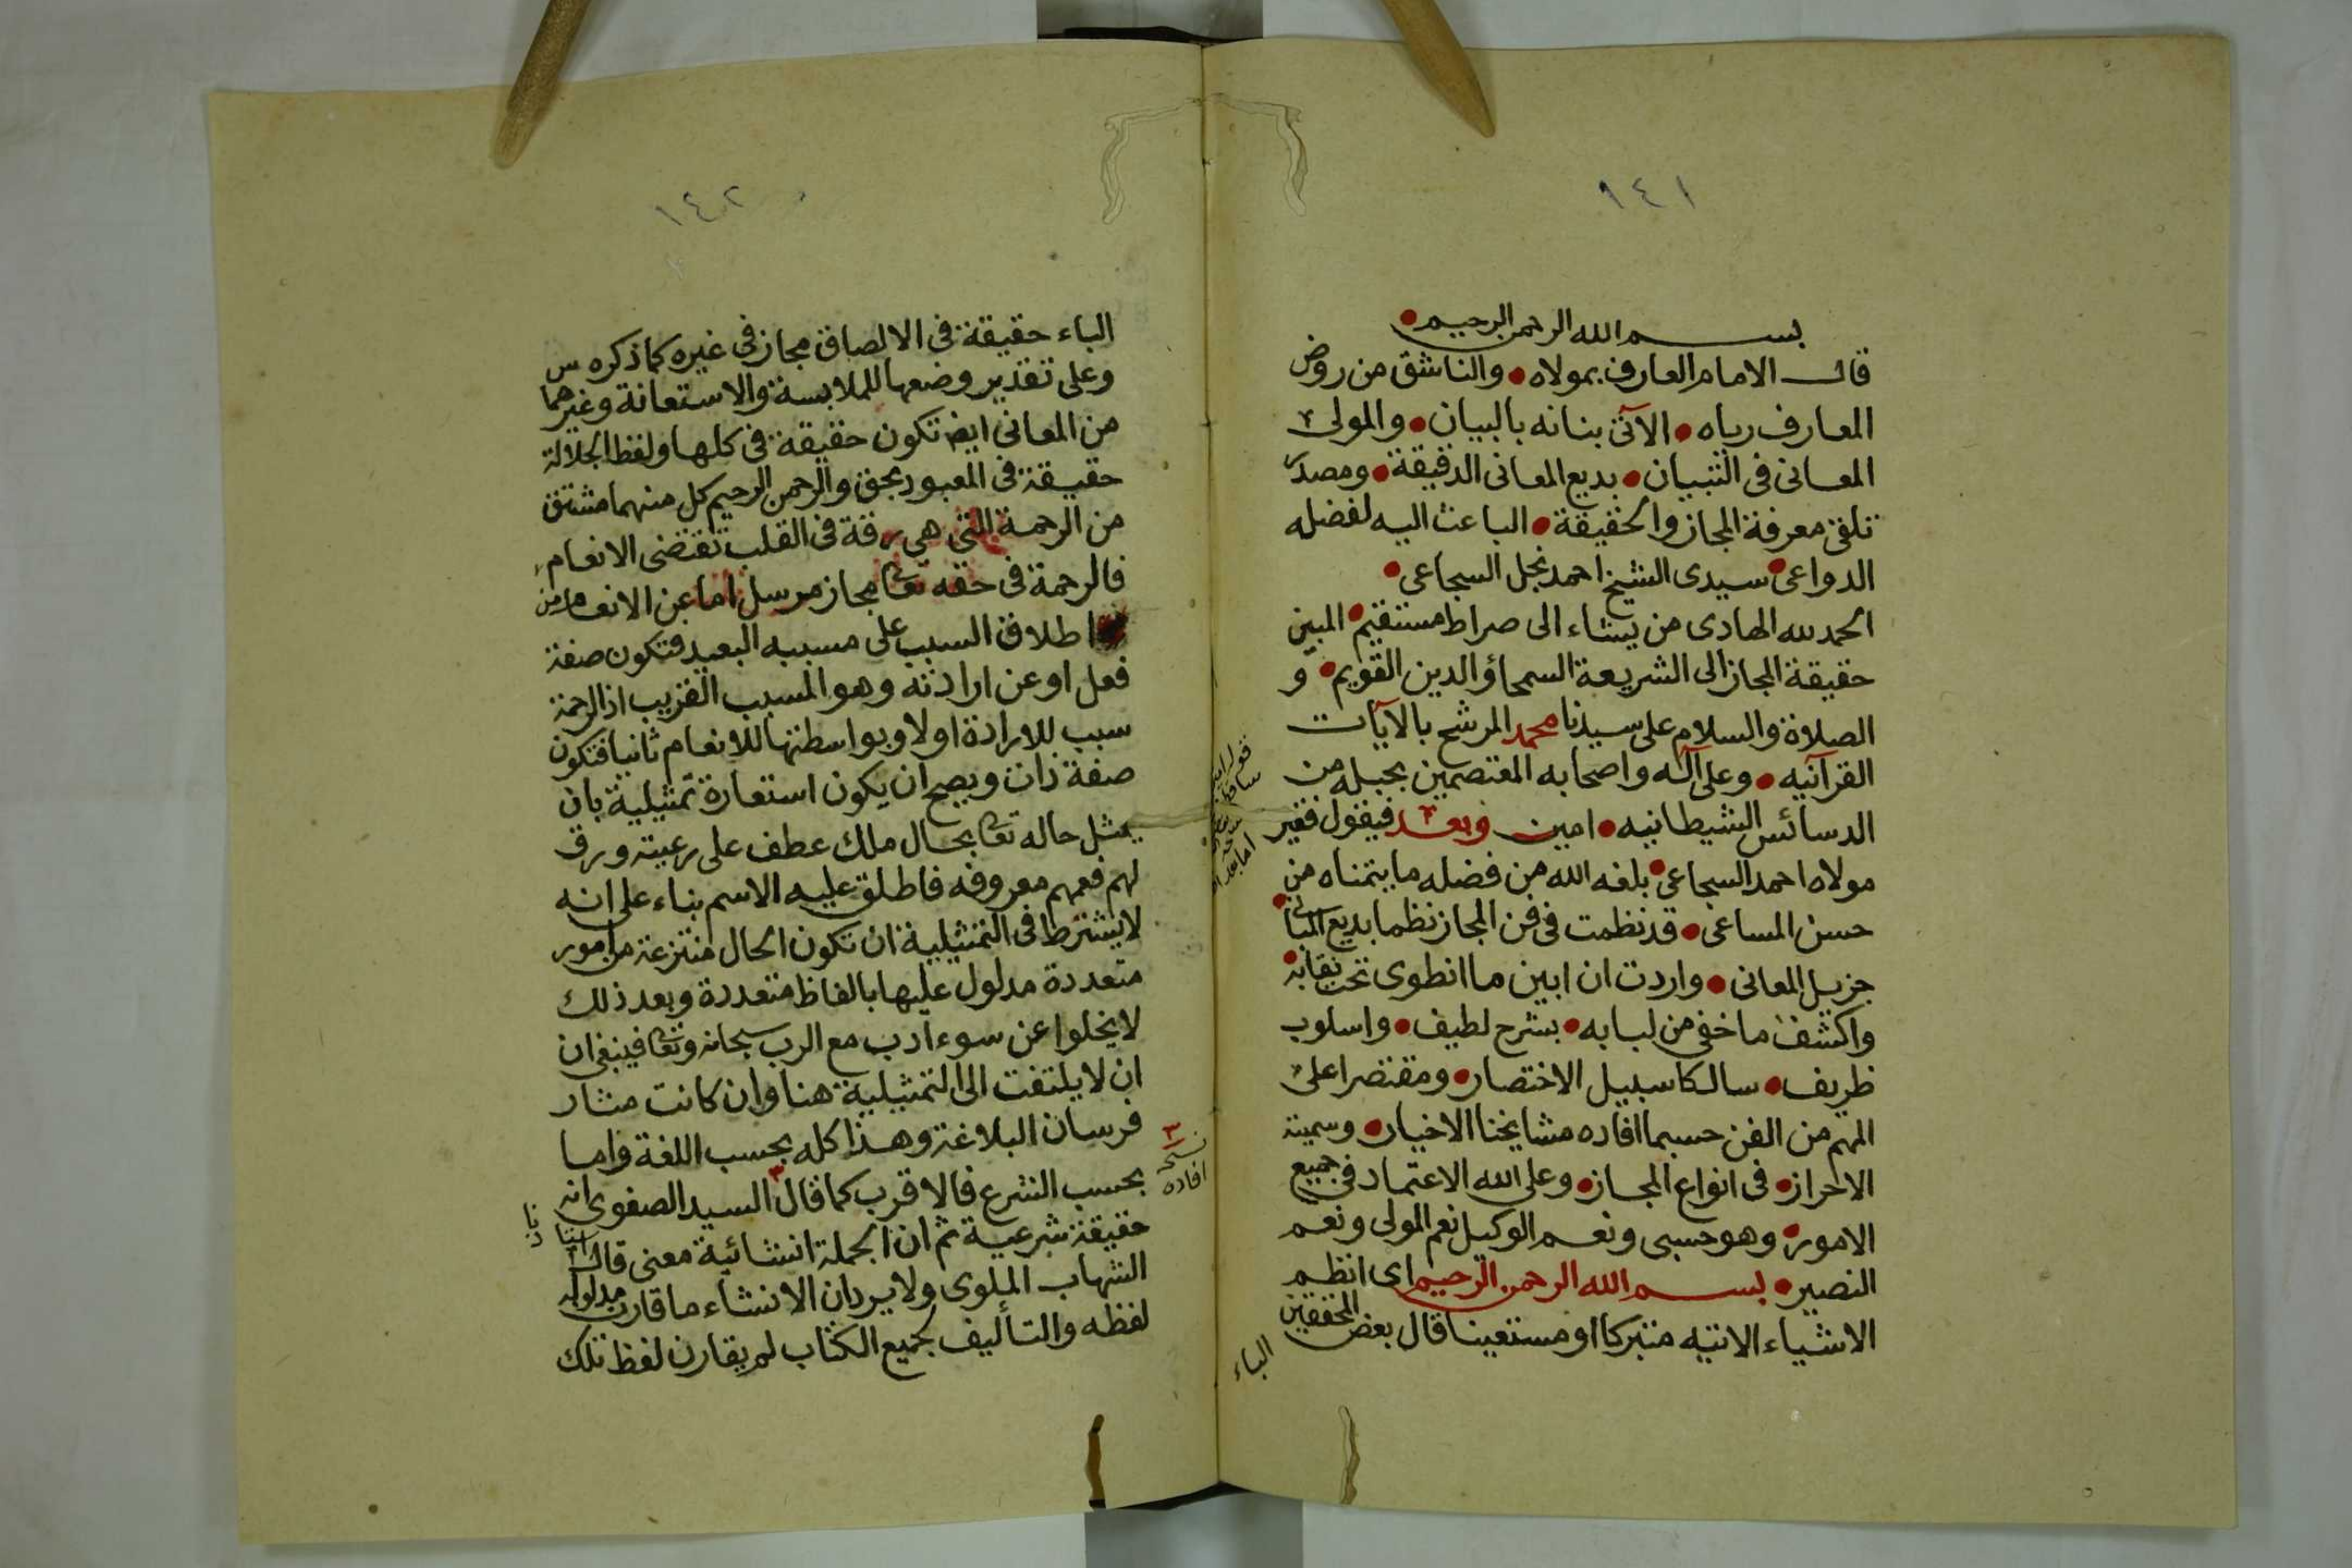 ١٤١
بسم الله الرحمن الرحيم
قال الامام العارف بمولاه • والناشق من روض
المعارف رياه • الآتى بنانه بالبيان • والمولى
المعانى فى التبيان • بديع المعانى الدقيقة • ومصدر
تلقى معرفة المجاز والحقيقة • الباعث اليه لفضله
الدواعى • سيدى الشيخ احمد نجل السجاعى •
الحمد لله الهادى من يشاء الى صراط مستقيم • المبين
حقيقة المجاز الى الشريعة السمحاؤ الدين القويم • و
الصلاة والسلام على سيدنا محمد المرشح بالآيات
القرآنيه • وعلى آله واصحابه المعتصمين بحبله من
الدسائس الشيطانيه • امين وبعد فيقول فقير
مولاه احمد السجاعى • بلغه الله من فضله ما يتمناه من
حسن المساعى • قد نظمت فى فن المجاز نظما بديع المبانى •
جزيل المعانى • واردت ان ابين ما انطوى تحت نقابه •
واكشف ما خفى من لبابه • بشرح لطيف • واسلوب
ظريف • سالكا سبيل الاختصار • ومقتصرا على
المهم من الفن حسبما افاده مشايخنا الاخيار • وسميته
الاحراز • فى انواع المجاز • وعلى الله الاعتماد فى جميع
الامور • وهو حسبى ونعم الوكيل نعم المولى ونعم
النصير • بسم الله الرحمن الرحيم اى انظم
الاشياء الاتيه متبركا او مستعينا قال بعض المحققين
الباء
١٤٢
الباء حقيقة فى الالصاق مجاز فى غيره كما ذكره س
وعلى تقدير وضعها للملابسة والاستعانة وغيرهما
من المعانى ايضا تكون حقيقة فى كلها ولفظ الجلالة
حقيقة فى المعبود بحق والرحمن الرحيم كل منهما مشتق
من الرحمة التى هى رقة فى القلب تقتضى الانعام
فالرحمة فى حقه تعا مجاز مرسل اما عن الانعام من
اطلاق السبب على مسببه البعيد فتكون صفة
فعل او عن ارادته وهو المسبب القريب اذ الرحمة
سبب للارادة اولا وبواسطتها للانعام ثانيا فتكون
صفة ذات ويصح ان يكون استعارة تمثيلية بان
يمثل حاله تعا بحال ملك عطف على رعيته ورق
لهم فعمهم معروفه فاطلق عليه الاسم بناء على انه
لا يشترط فى التمثيلية ان تكون الحال منتزعة من امور
متعددة مدلول عليها بالفاظ متعددة وبعد ذلك
لا يخلوا عن سوء ادب مع الرب سبحانه وتعا فينبغى ان
ان لا يلتفت الى التمثيلية هنا وان كانت مثار
فرسان البلاغة وهذا كله بحسب اللغة واما
بحسب الشرع فالاقرب كما قال٣ السيد الصفوى انه
٣ نسخة افاده
حقيقة شرعية ثم ان الجملة انشائية معنى قال
الشهاب الملوى ولا يرد ان الانشاء ما قارن مدلوله
لفظه والتأليف بجميع الكتاب لم يقارن لفظ تلك